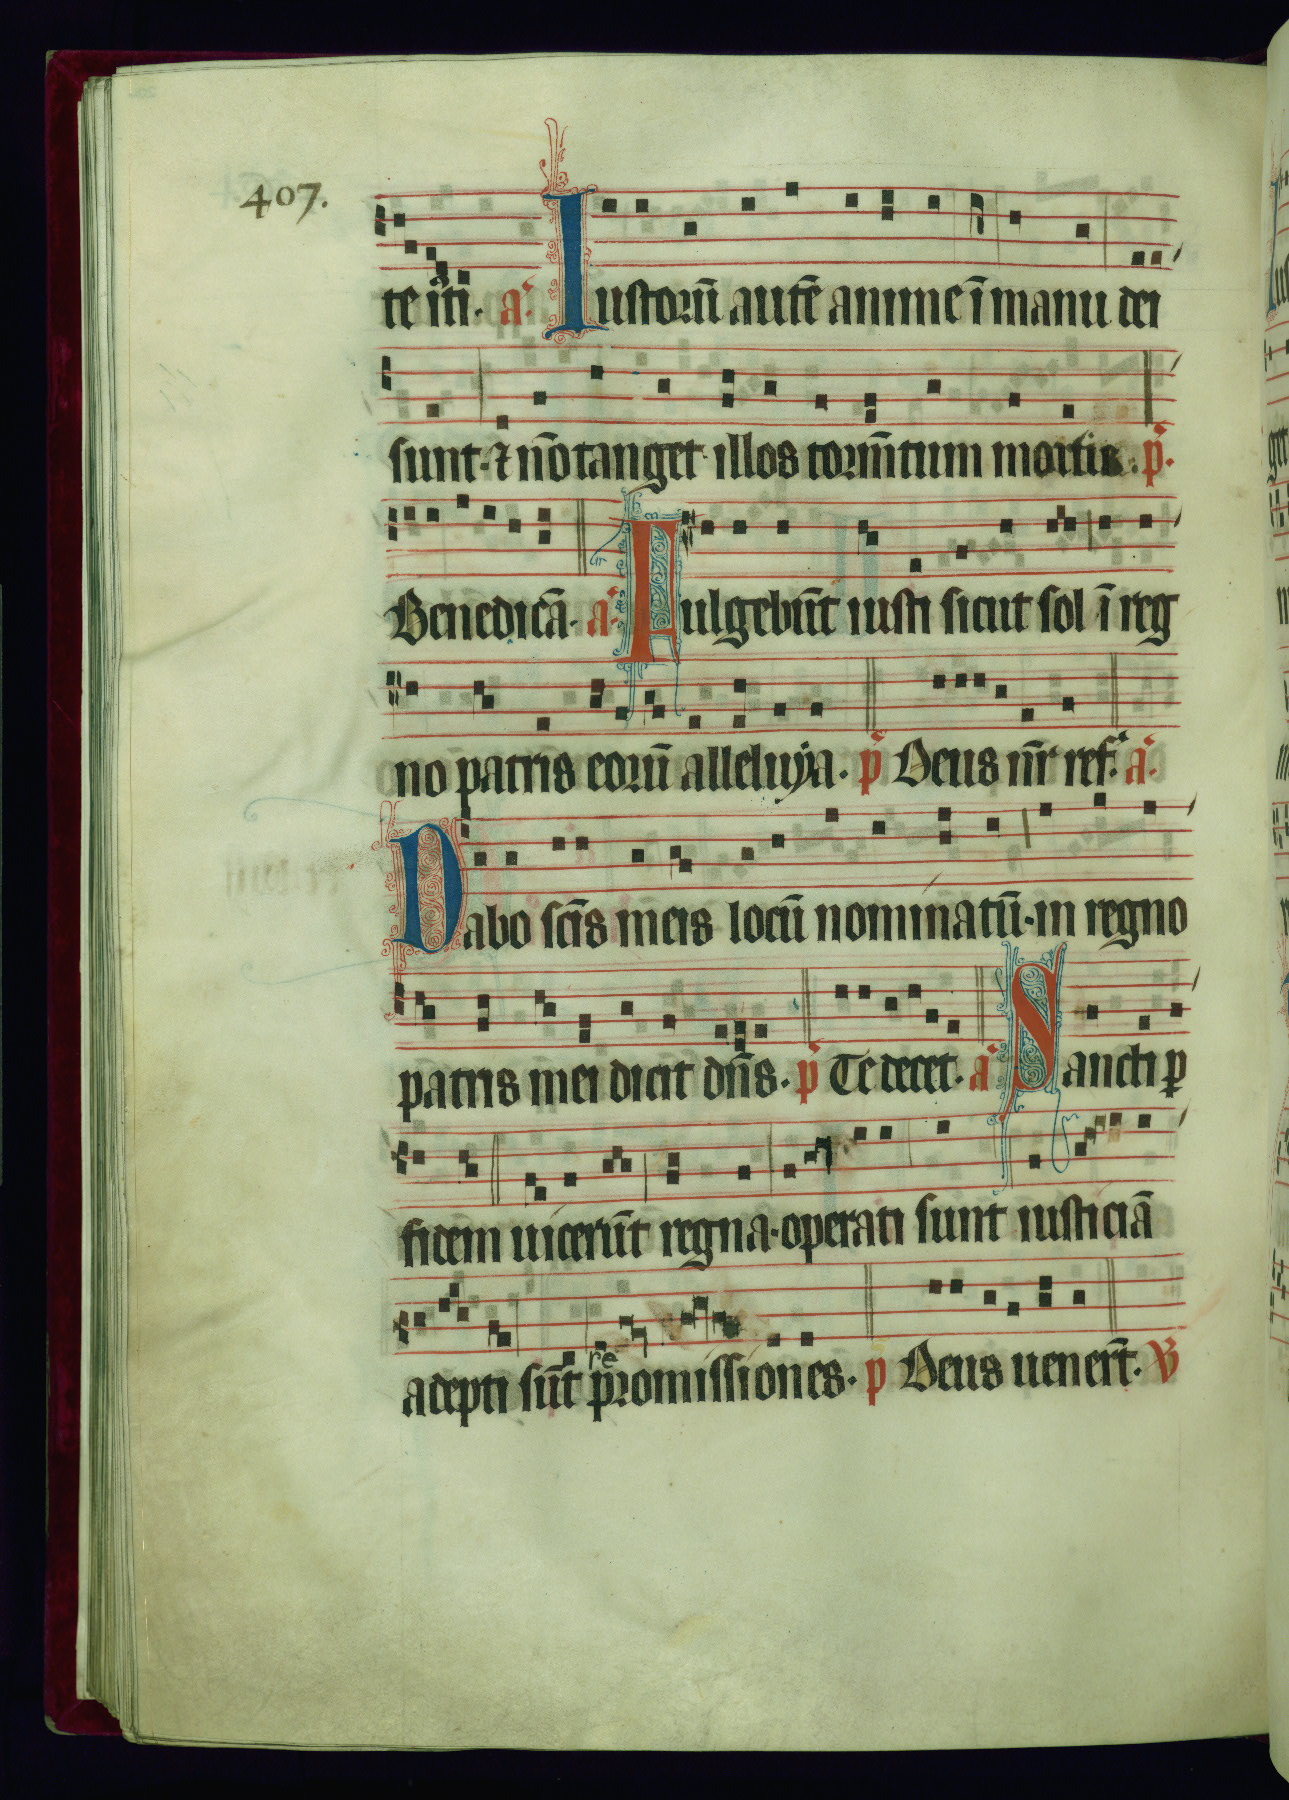 407.
te iti. a. Iustoꝝ̄ autē anime ī manu dei
sunt. ⁊ nō tanget illos tormn̄tum mortis. p̄.
Benedicā. a. Fulgebūt iusti sicut sol ī reg
no patris eorū alleluya. p̄ Deus nr̄ ref. a.
Dabo scīs meis locū nominatū. in regno
patris mei dicit dn̄s. p̄ Te decet. a Sancti ꝑ
fidem uicerūt regna. operati sunt iusticiā
adepti sūt re promissiones. p Deus uenerт̄. V